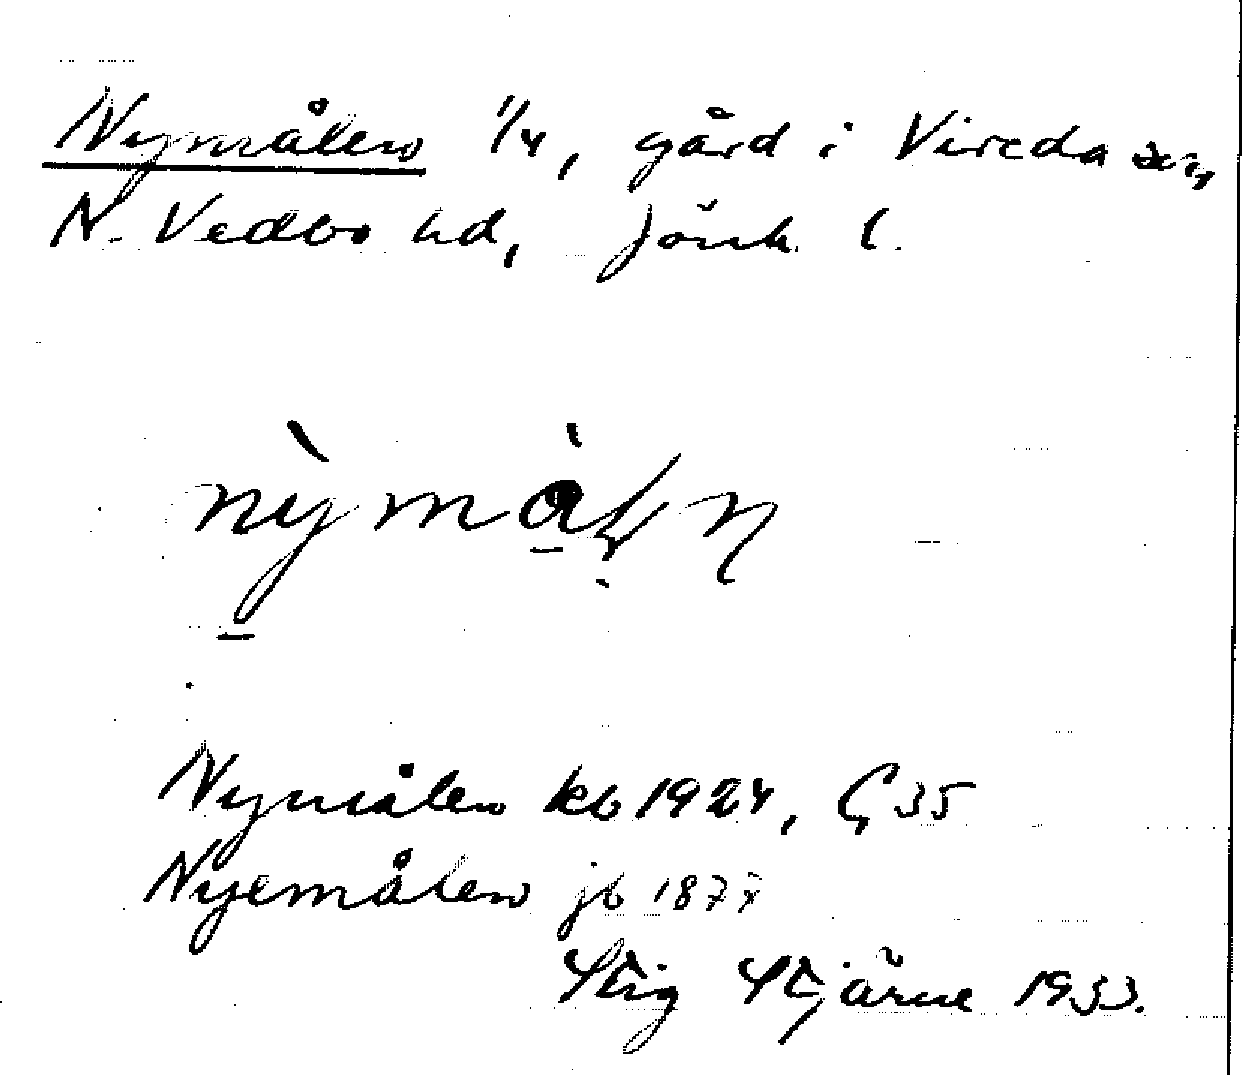 Nymålen 1/4, gård i Vireda sn,
N. Vedbo hd, Jönk. l.
nỳmàln
Nymålen kb 1924, G 35
Nyemålen jb 1877
Stig Stjärne 1933.